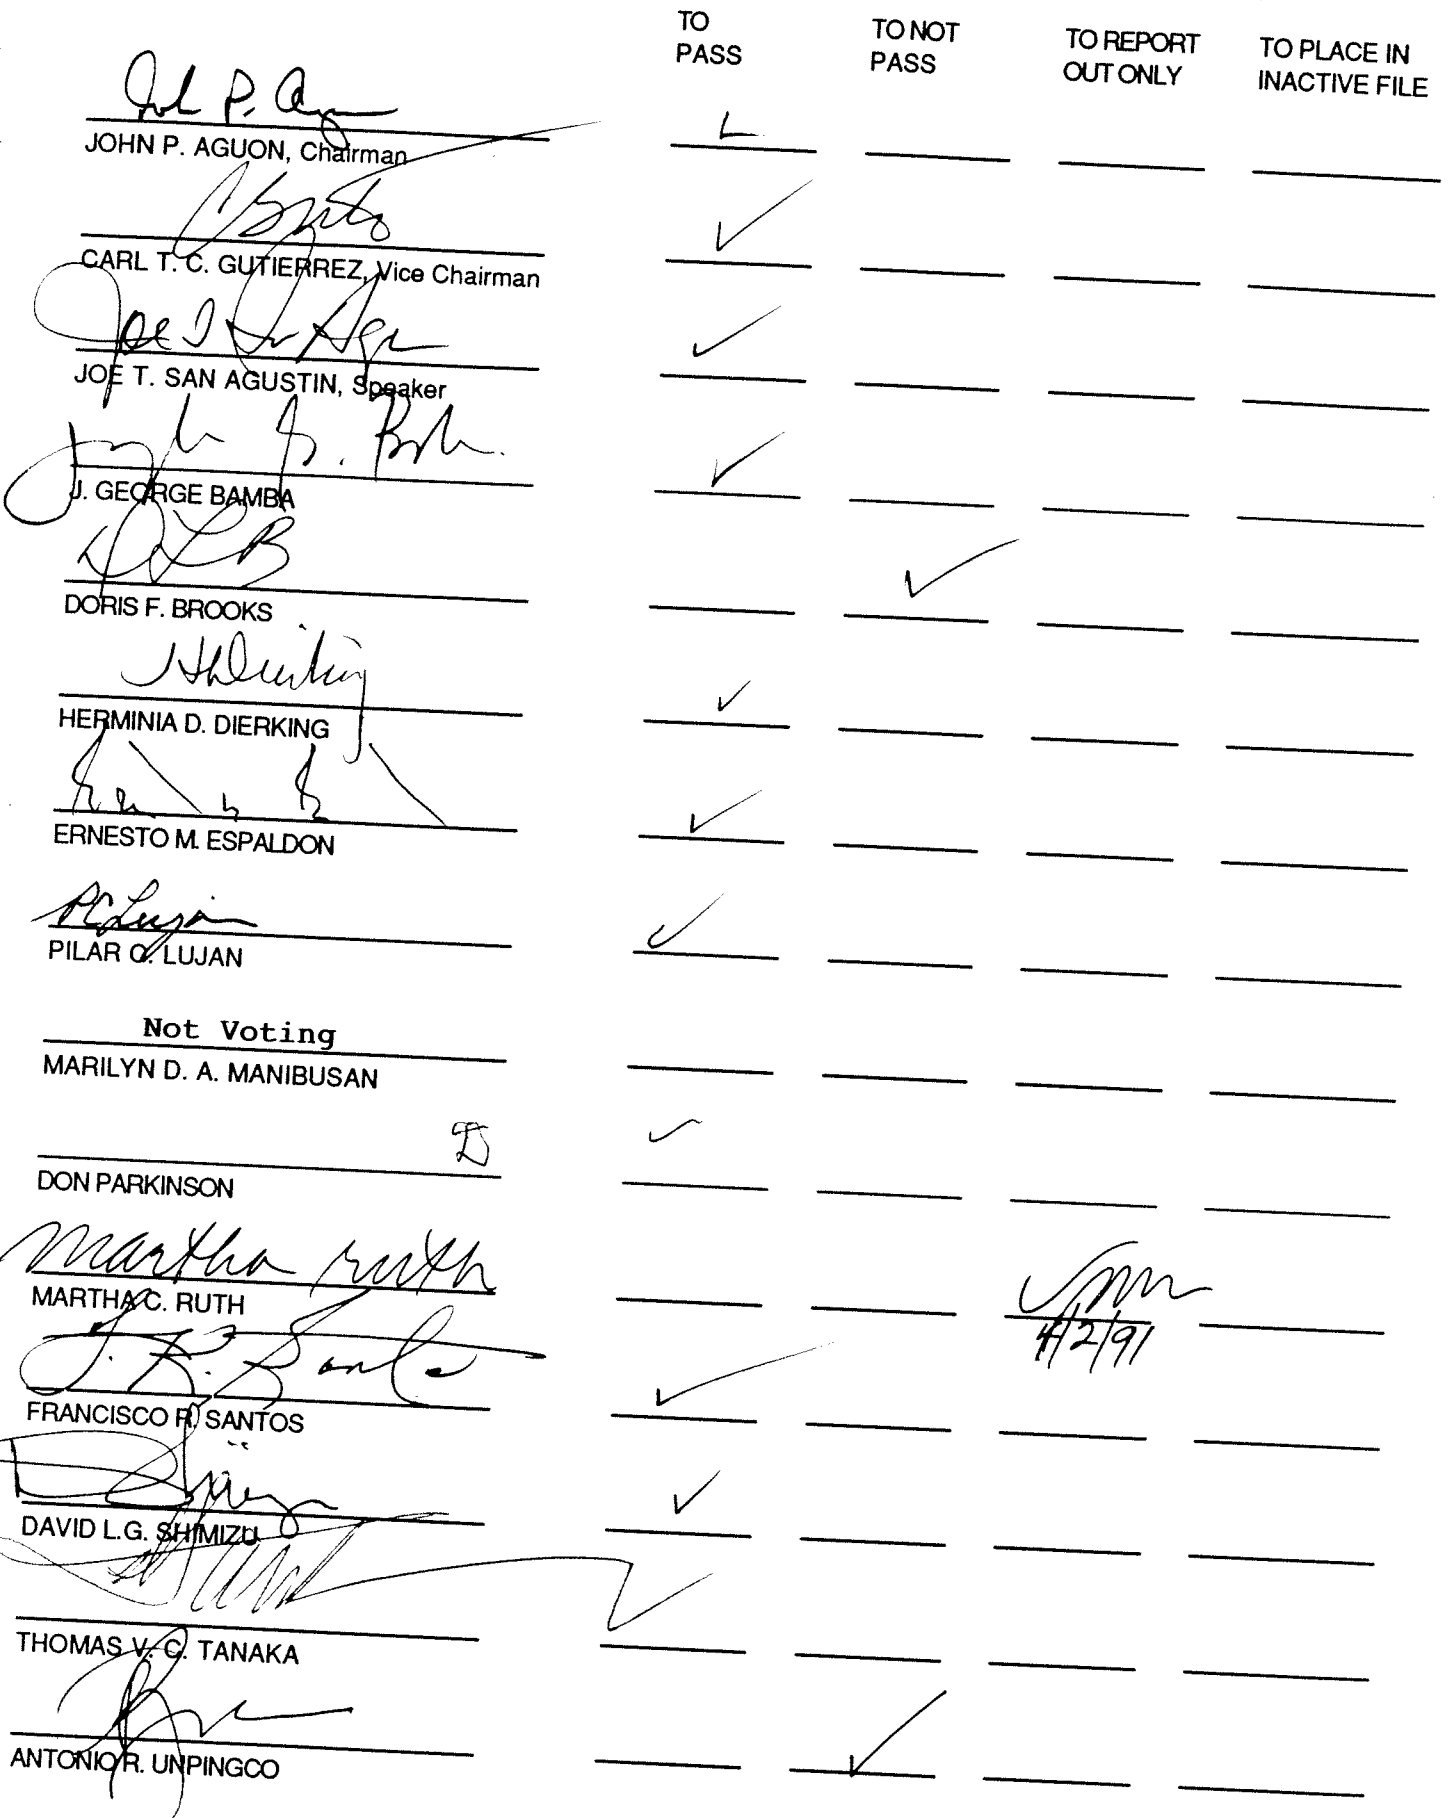 TO PASS TO NOT PASS TO REPORT OUT ONLY TO PLACE IN INACTIVE FILE
John P. Aguon
JOHN P. AGUON, Chairman
CARL T. C. GUTIERREZ, Vice Chairman
Joe T. San Agustin
JOE T. SAN AGUSTIN, Speaker
J. GEORGE BAMBA
DORIS F. BROOKS
HDierking
HERMINIA D. DIERKING
ERNESTO M. ESPALDON
PC Lujan
PILAR C. LUJAN
Not Voting
MARILYN D. A. MANIBUSAN
DON PARKINSON
martha ruth
MARTHA C. RUTH
4/2/91
F. R. Santos
FRANCISCO R. SANTOS
DAVID L.G. SHIMIZU
THOMAS V. C. TANAKA
ANTONIO R. UNPINGCO